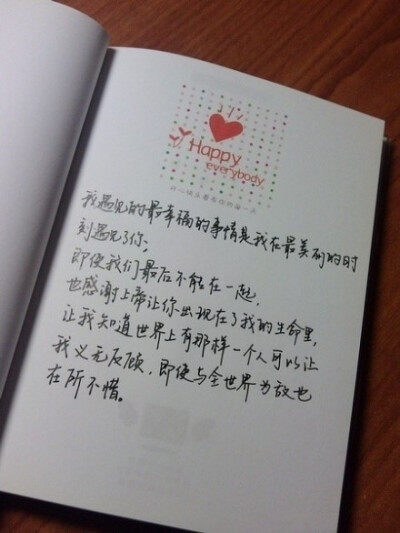 Happy
everybody
我遇见的最幸福的事情是我在最美丽的时
刻遇见了你、
即使我们最后不能在一起，
也感谢上帝让你出现在了我的生命里，
让我知道世界上有那样一个人可以让
我义无反顾，即使与全世界为敌也
在所不惜。